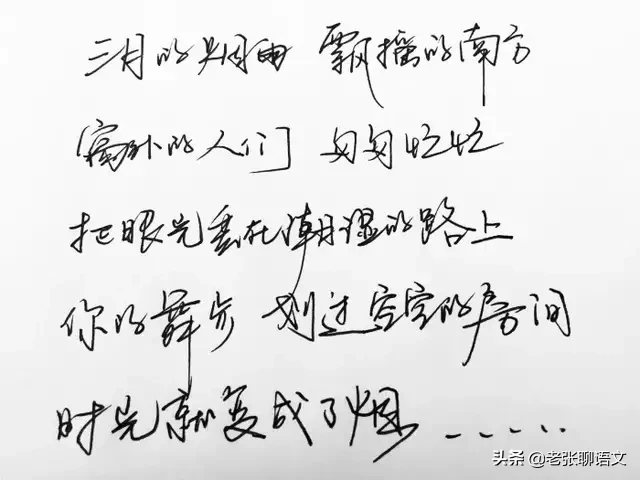 三月的烟雨 飘摇的南方
(窗外的人们] 匆匆忙忙
把眼光丢在潮湿的路上
你的舞步 划过空空的房间
时光就变成了烟......
头条 @老张聊语文